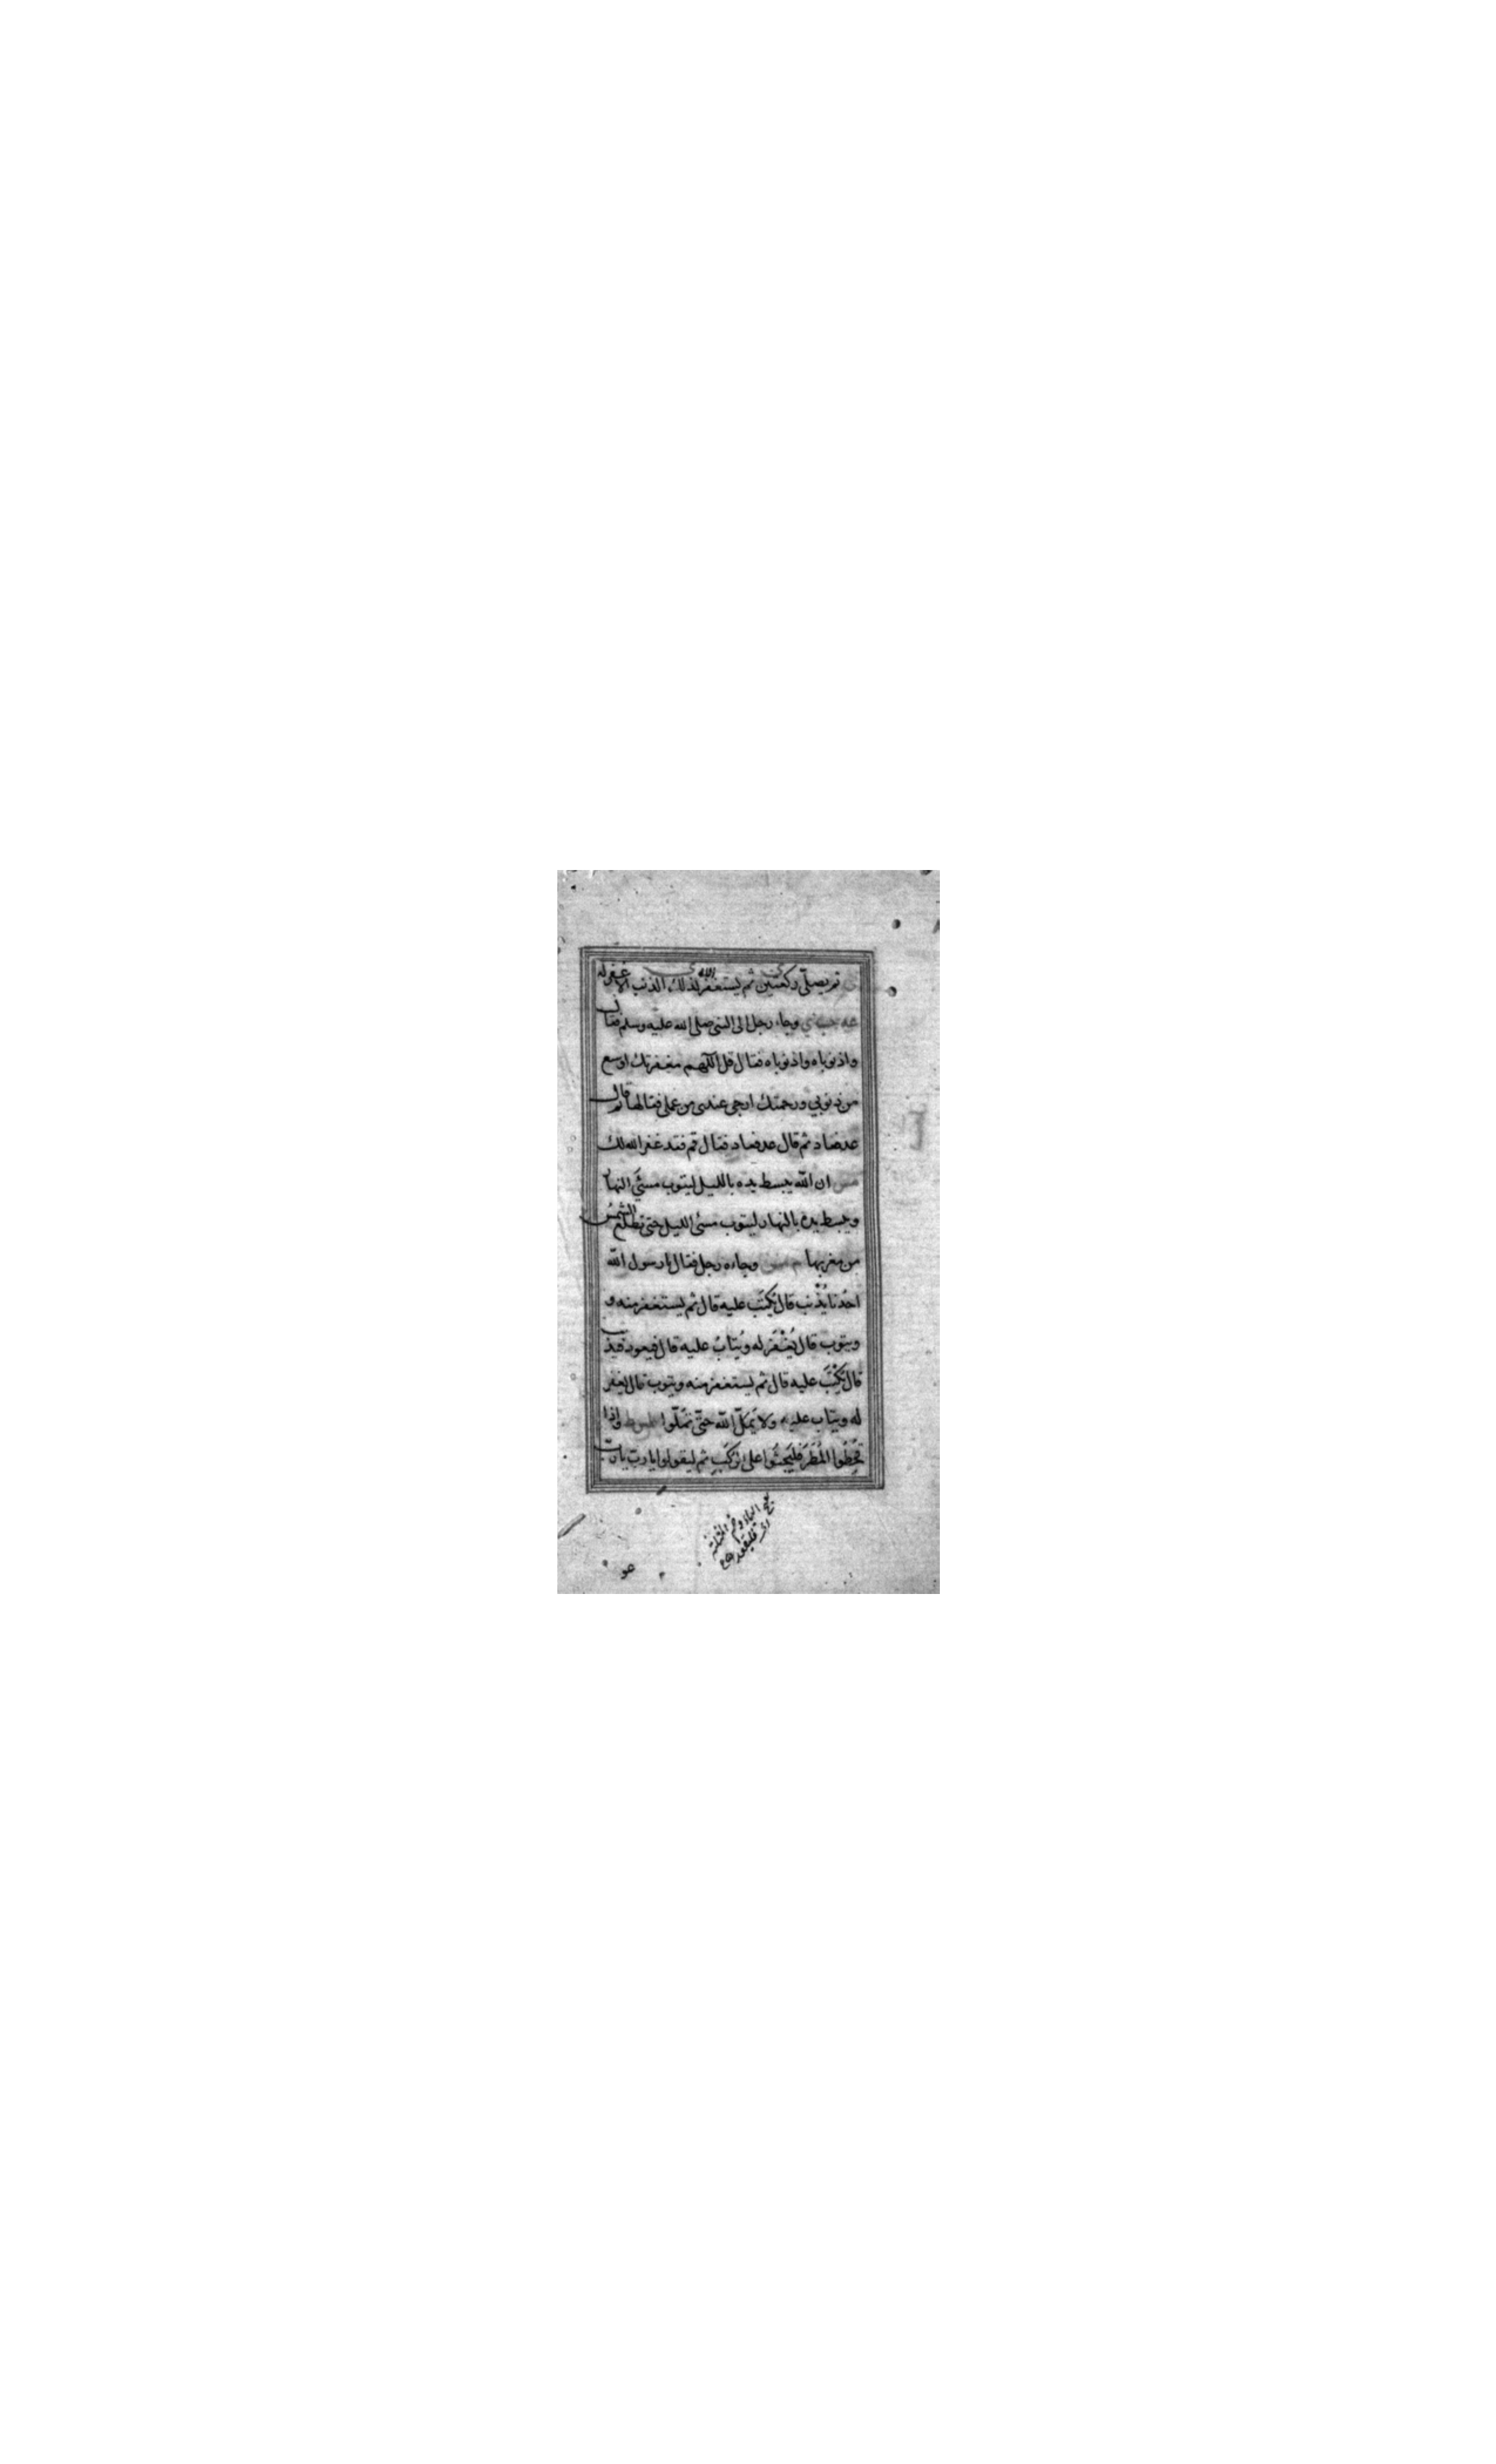 ثم يصلي ركعتين ثم يستغفر الله لذلك الذنب الا غفر له
وجاء رجل الى النبي صلى الله عليه وسلم فقال
واذنوباه واذنوباه فقال قل اللهم مغفرتك اوسع
من ذنوبي ورحمتك ارجى عندي من عملي فقالها ثم قال
عد فعاد ثم قال عد فعاد فقال قم فقد غفر الله لك
ان الله يبسط يده بالليل ليتوب مسئ النهار
ويبسط يده بالنهار ليتوب مسئ الليل حتى تطلع الشمس
من مغربها وجاءه رجل فقال يا رسول الله
احدنا يذنب قال يُكتَب عليه قال ثم يستغفر منه و
ويتوب قال يُغْفَر له ويُتابُ عليه قال فيعود فيذنب
قال يُكْتَبَ عليه قال ثم يستغفر منه ويتوب قال يغفر
له ويتاب عليه ولا يَمَلّ الله حتّى تَمَلّوا طس واذا
قُحِطُوا المَطَرَ فليَجثُوا على الرُّكَبِ ثم ليقولوا يا رب يا رب